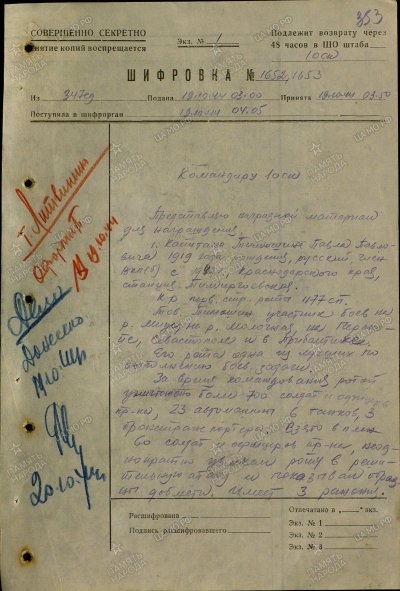 353
СОВЕРШЕННО СЕКРЕТНО
Экз. № 1
Подлежит возврату через
Снятие копий воспрещается
48 часов в ШО штаба
1 оск
ШИФРОВКА № 1652, 1653
Из 347сд Подана 19.10.44 03.00 Принята 19.10.44 03.50
Поступила в шифрорган 19.10.44 04.05
Командиру 1 оск
Представляю наградной материал
для награждения
1. Капитана Павла Павло-
вича 1919 года рождения, русский, член
ВКП(б) с Краснодарского края,
станица
К-р рота 1177 сп.
Тов. участник боев на
р. на р. Молочная, на Переко-
пе, Севастополе и в Прибалтике.
Его рота одна из лучших по
выполнению боев. задач.
За время командования ротой
уничтожено более 700 солдат и офицеров
пр-ка, 23 автомашины, 6 танков, 3
бронетранспортера. Взято в плен
60 солдат и офицеров пр-ка, неод-
нократно роту в реши-
тельную атаку и показывал образ-
цы доблести. Имеет 3 ранения.
Т. Литвинкин
19.10.44
Дело
Донесено
20.10.44
Расшифрована
Подпись расшифровавшего
Отпечатано в „ “ экз.
Экз. № 1
Экз. № 2
Экз. № 3